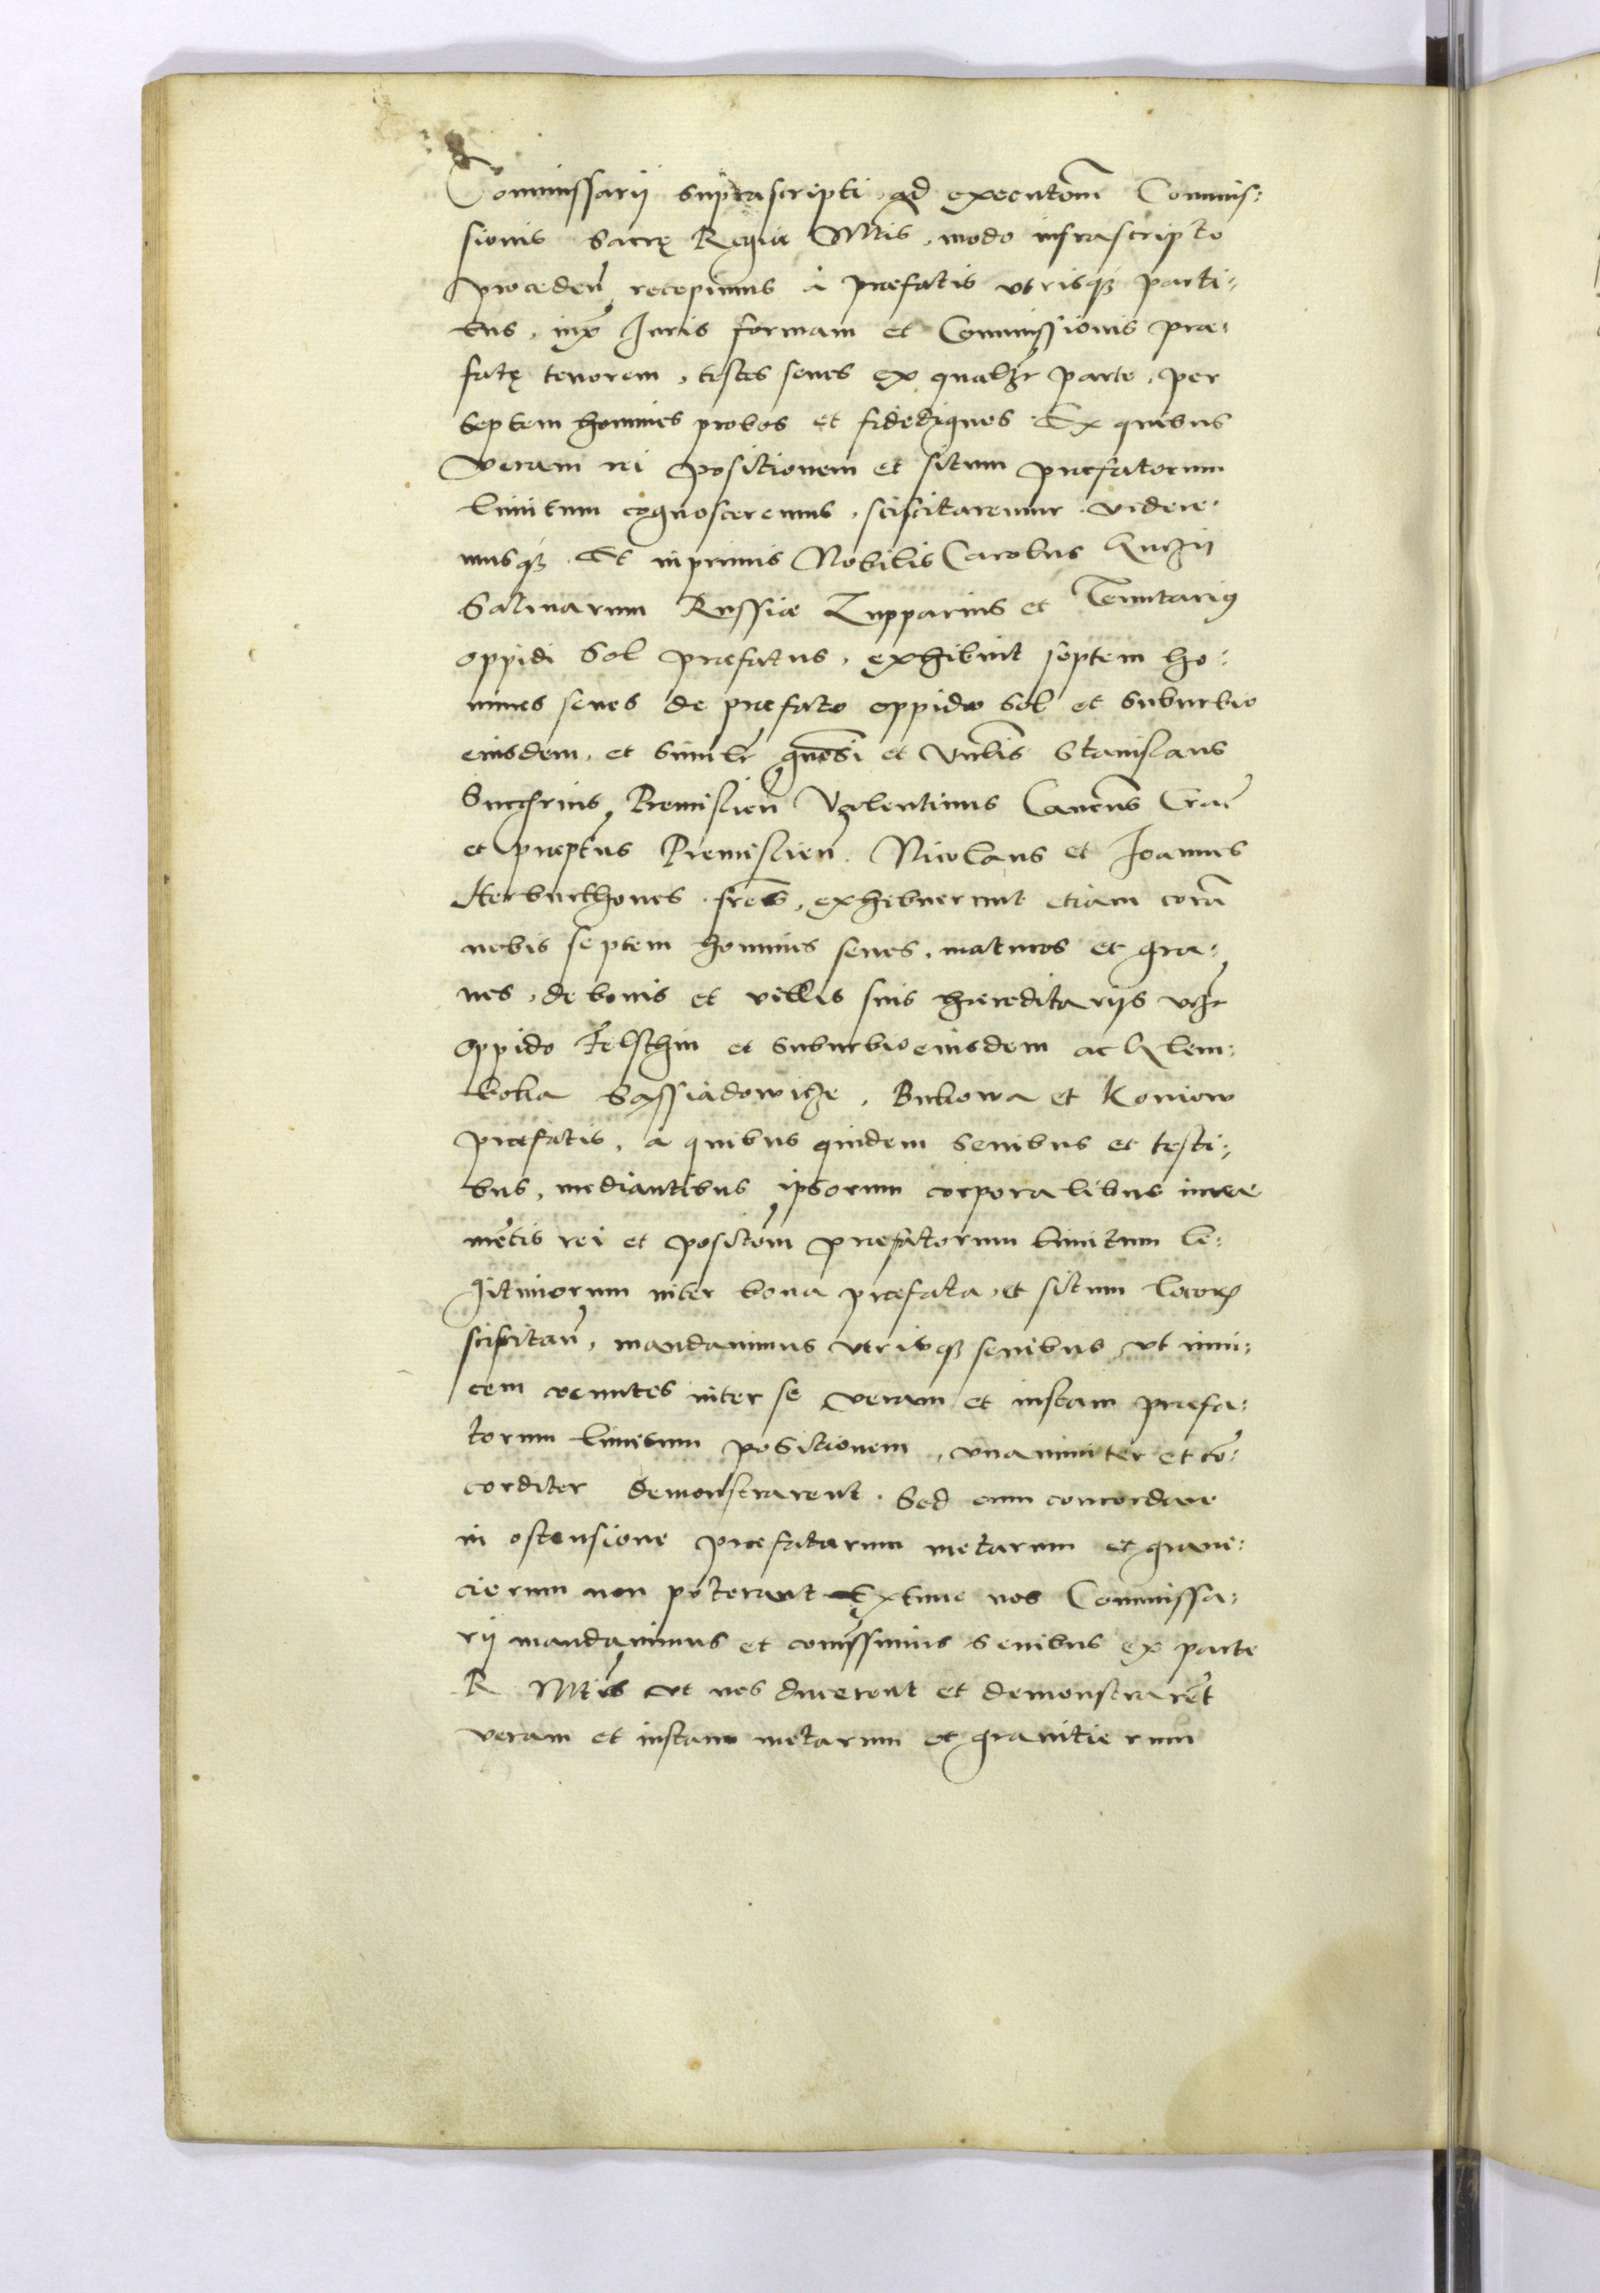 Commissarij suprascripti ad executōm Commis:
sionis Sacrę Regiæ Mtis, modo infrascripto
proceden̄ recepimus à præfatis utrisq; parti:
bus, iux̄ Juris formam et Commissionis præ:
fatę tenorem, testes senes ex qualȝr parte, per
septem homines probos et fidedignos. Ex quibus
veram rei positionem et situm præfatorum
limitum cognosceremus, sciscitaremur videre:
musq; Et inprimis Nobilis Carolus
Salinarum Russiæ Zupparius et Tenutarius
oppidi Sol præfatus, exhibuit septem ho:
mines senes de præfato oppido Sol et suburbio
eiusdem, et similr gn̄osi et Vn̄blis Stanislaus
Succ̄frius Premislien̄ Valentinus Cancr̄us Crac̄
et præptus Premislien̄. Nicolaus et Joannes
Herburthones fres̄, exhibuerunt etiam corā
nobis septem homines senes, maturos et gra:
ues, de bonis et villis suis hæreditarijs vȝr
oppido Felschin et suburbio eiusdem ac Glem:
boka Sassiadowicze, Bukowa et Koniow
præfatis, à quibus quidem senibus et testi:
bus, mediantibus ipsorum corporalibus iura
mētis rei et positōm præfatorum limitum le:
gitimorum inter bona præfata, et situm locorꝝ
scisitan̄, mandauimus utrisq; senibus ut inui:
cem uenites inter se veram et iustam præfa:
torum limitum positionem, vnanimiter et cō:
corditer demonstrarent. Sed cum concordare
in ostensione præfatarum metarum et grani:
cierum non poterant Extunc nos Commissa:
rij mandauimus et comissimus senibus ex parte
R Mtis ut nos ducerent et demonstrarēt
veram et iustam metarum et granitierum